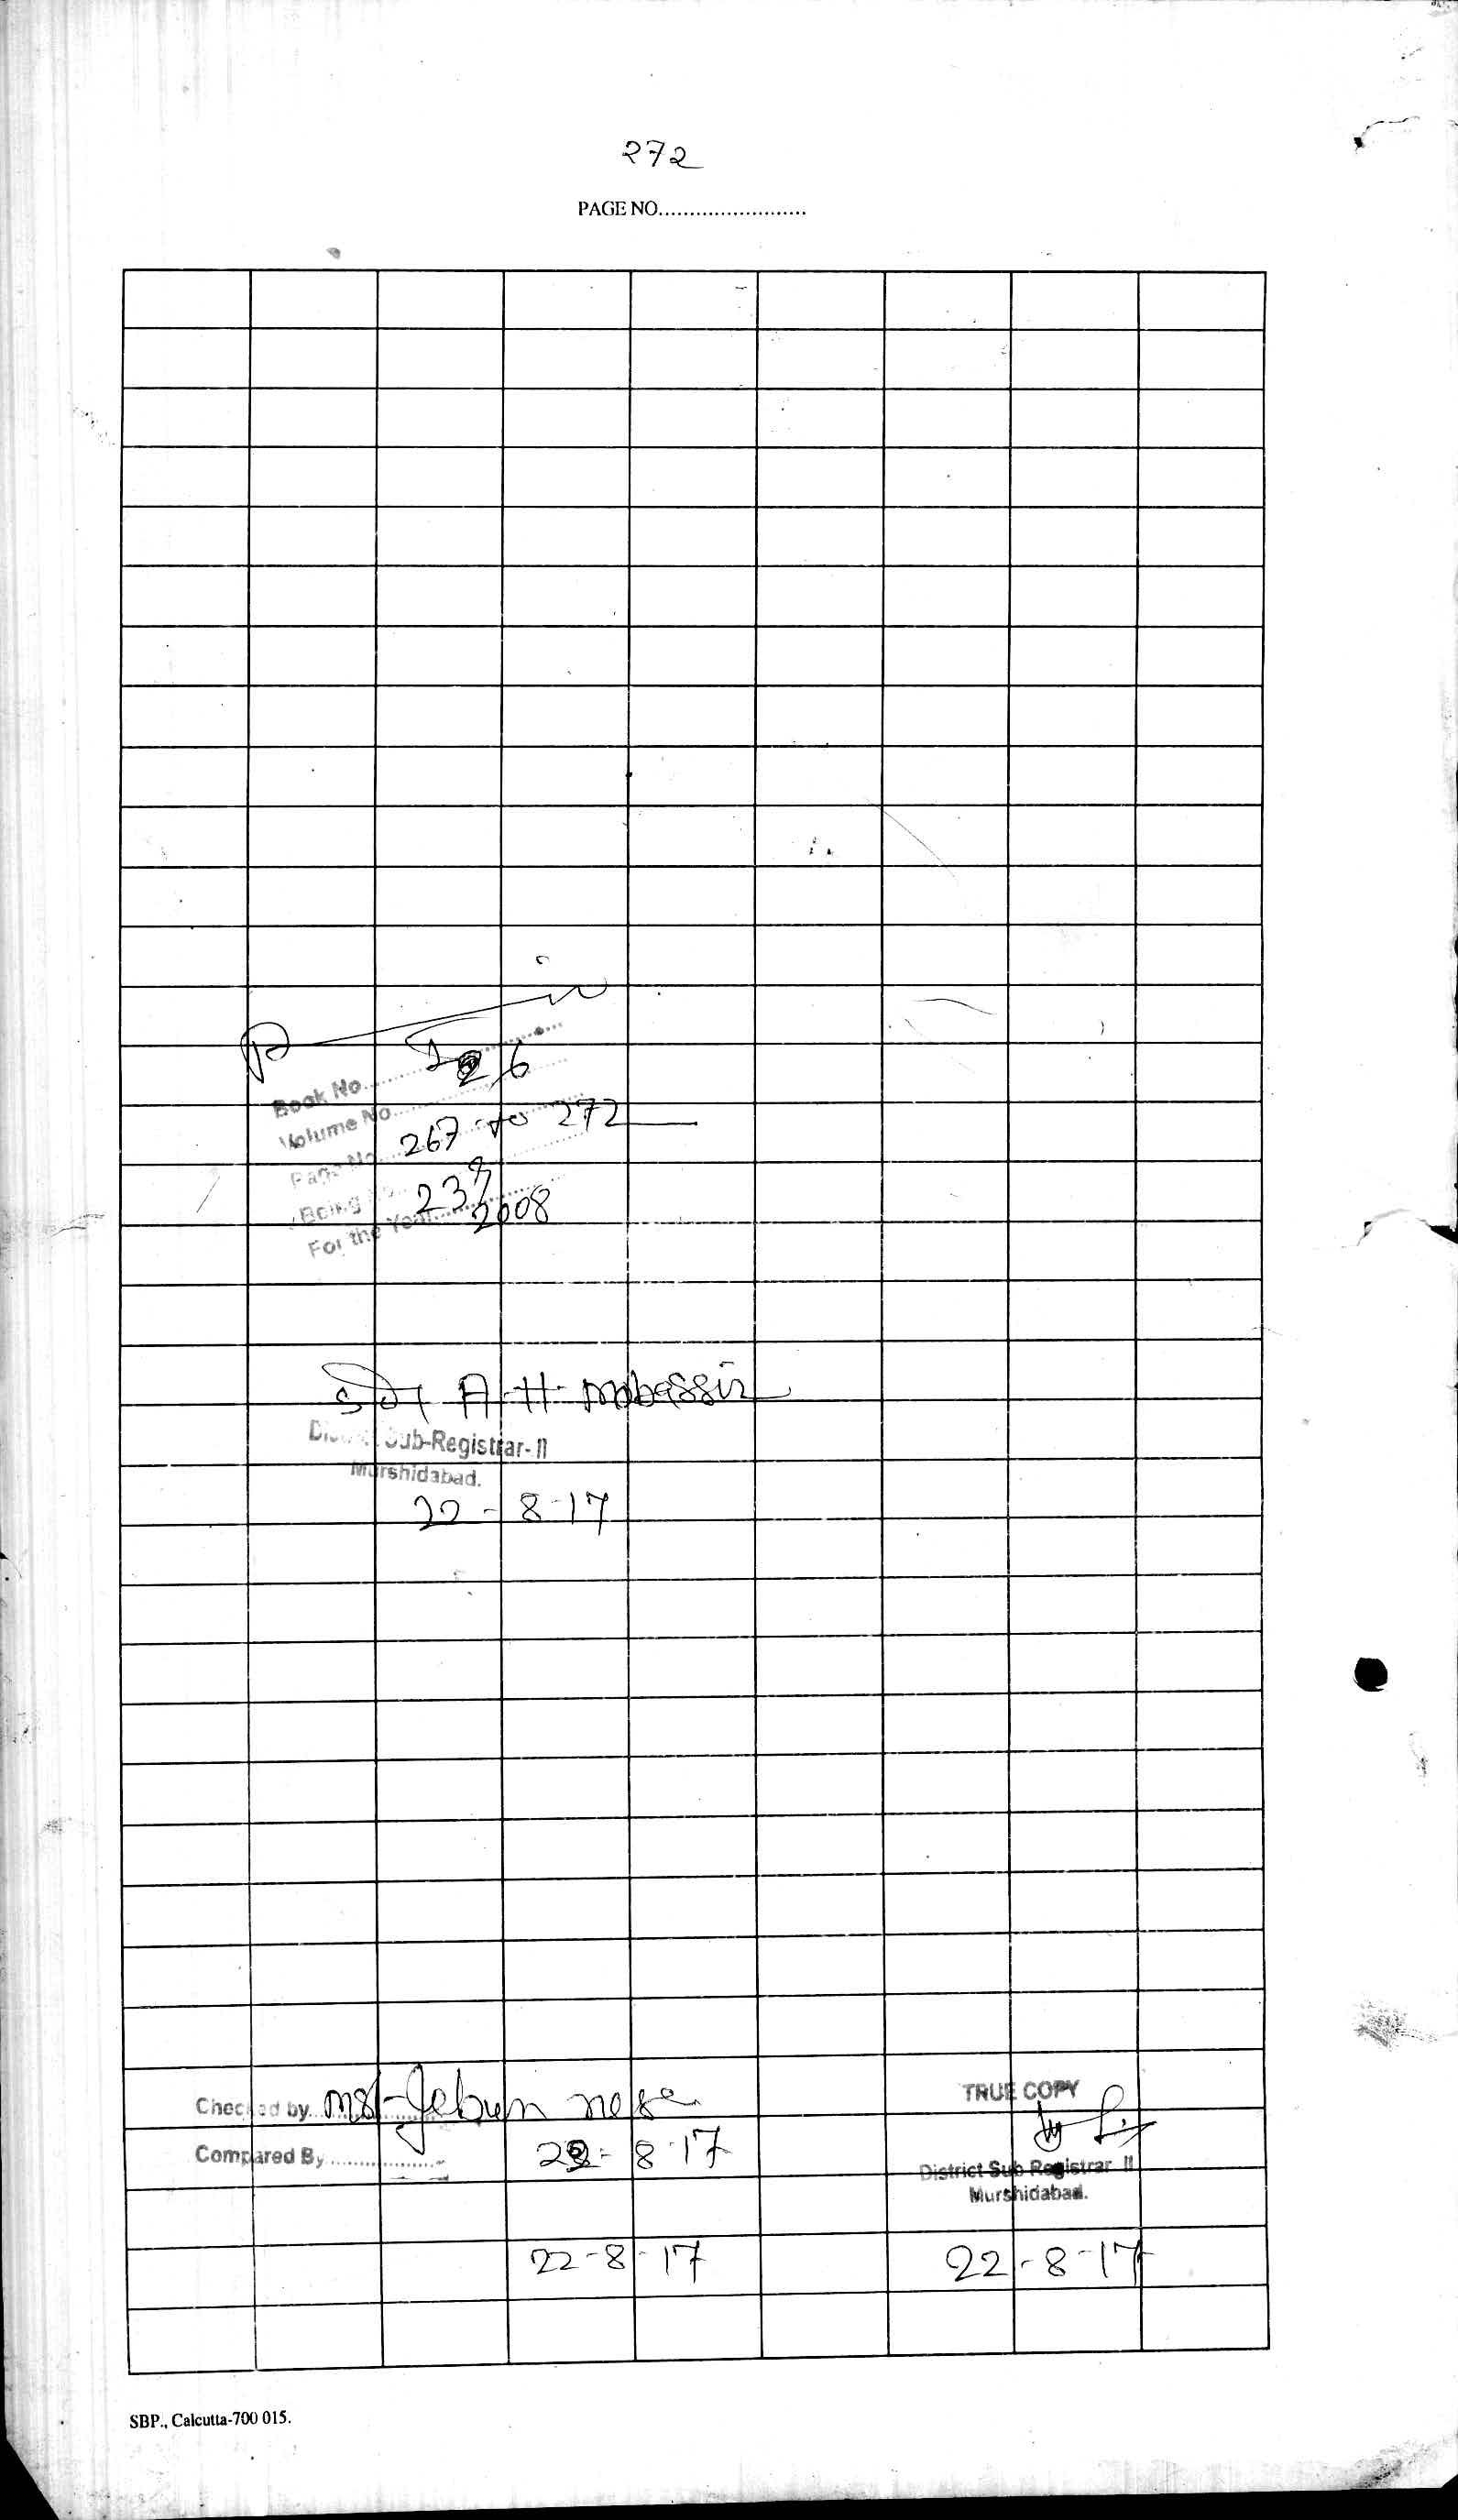 272
PAGE NO.........................
Book No............ I
Volume No............ 26
Page No. 267 to 272
Being No. 238
For the Year............ 2008
A. H. Mobassir
District Sub-Registrar-II
Murshidabad.
22-8-17
Checked by Mst-Jebun nesa
Compared By.................... 22-8-17
22-8-17
TRUE COPY
District Sub Registrar II
Murshidabad.
22-8-17
SBP., Calcutta-700 015.